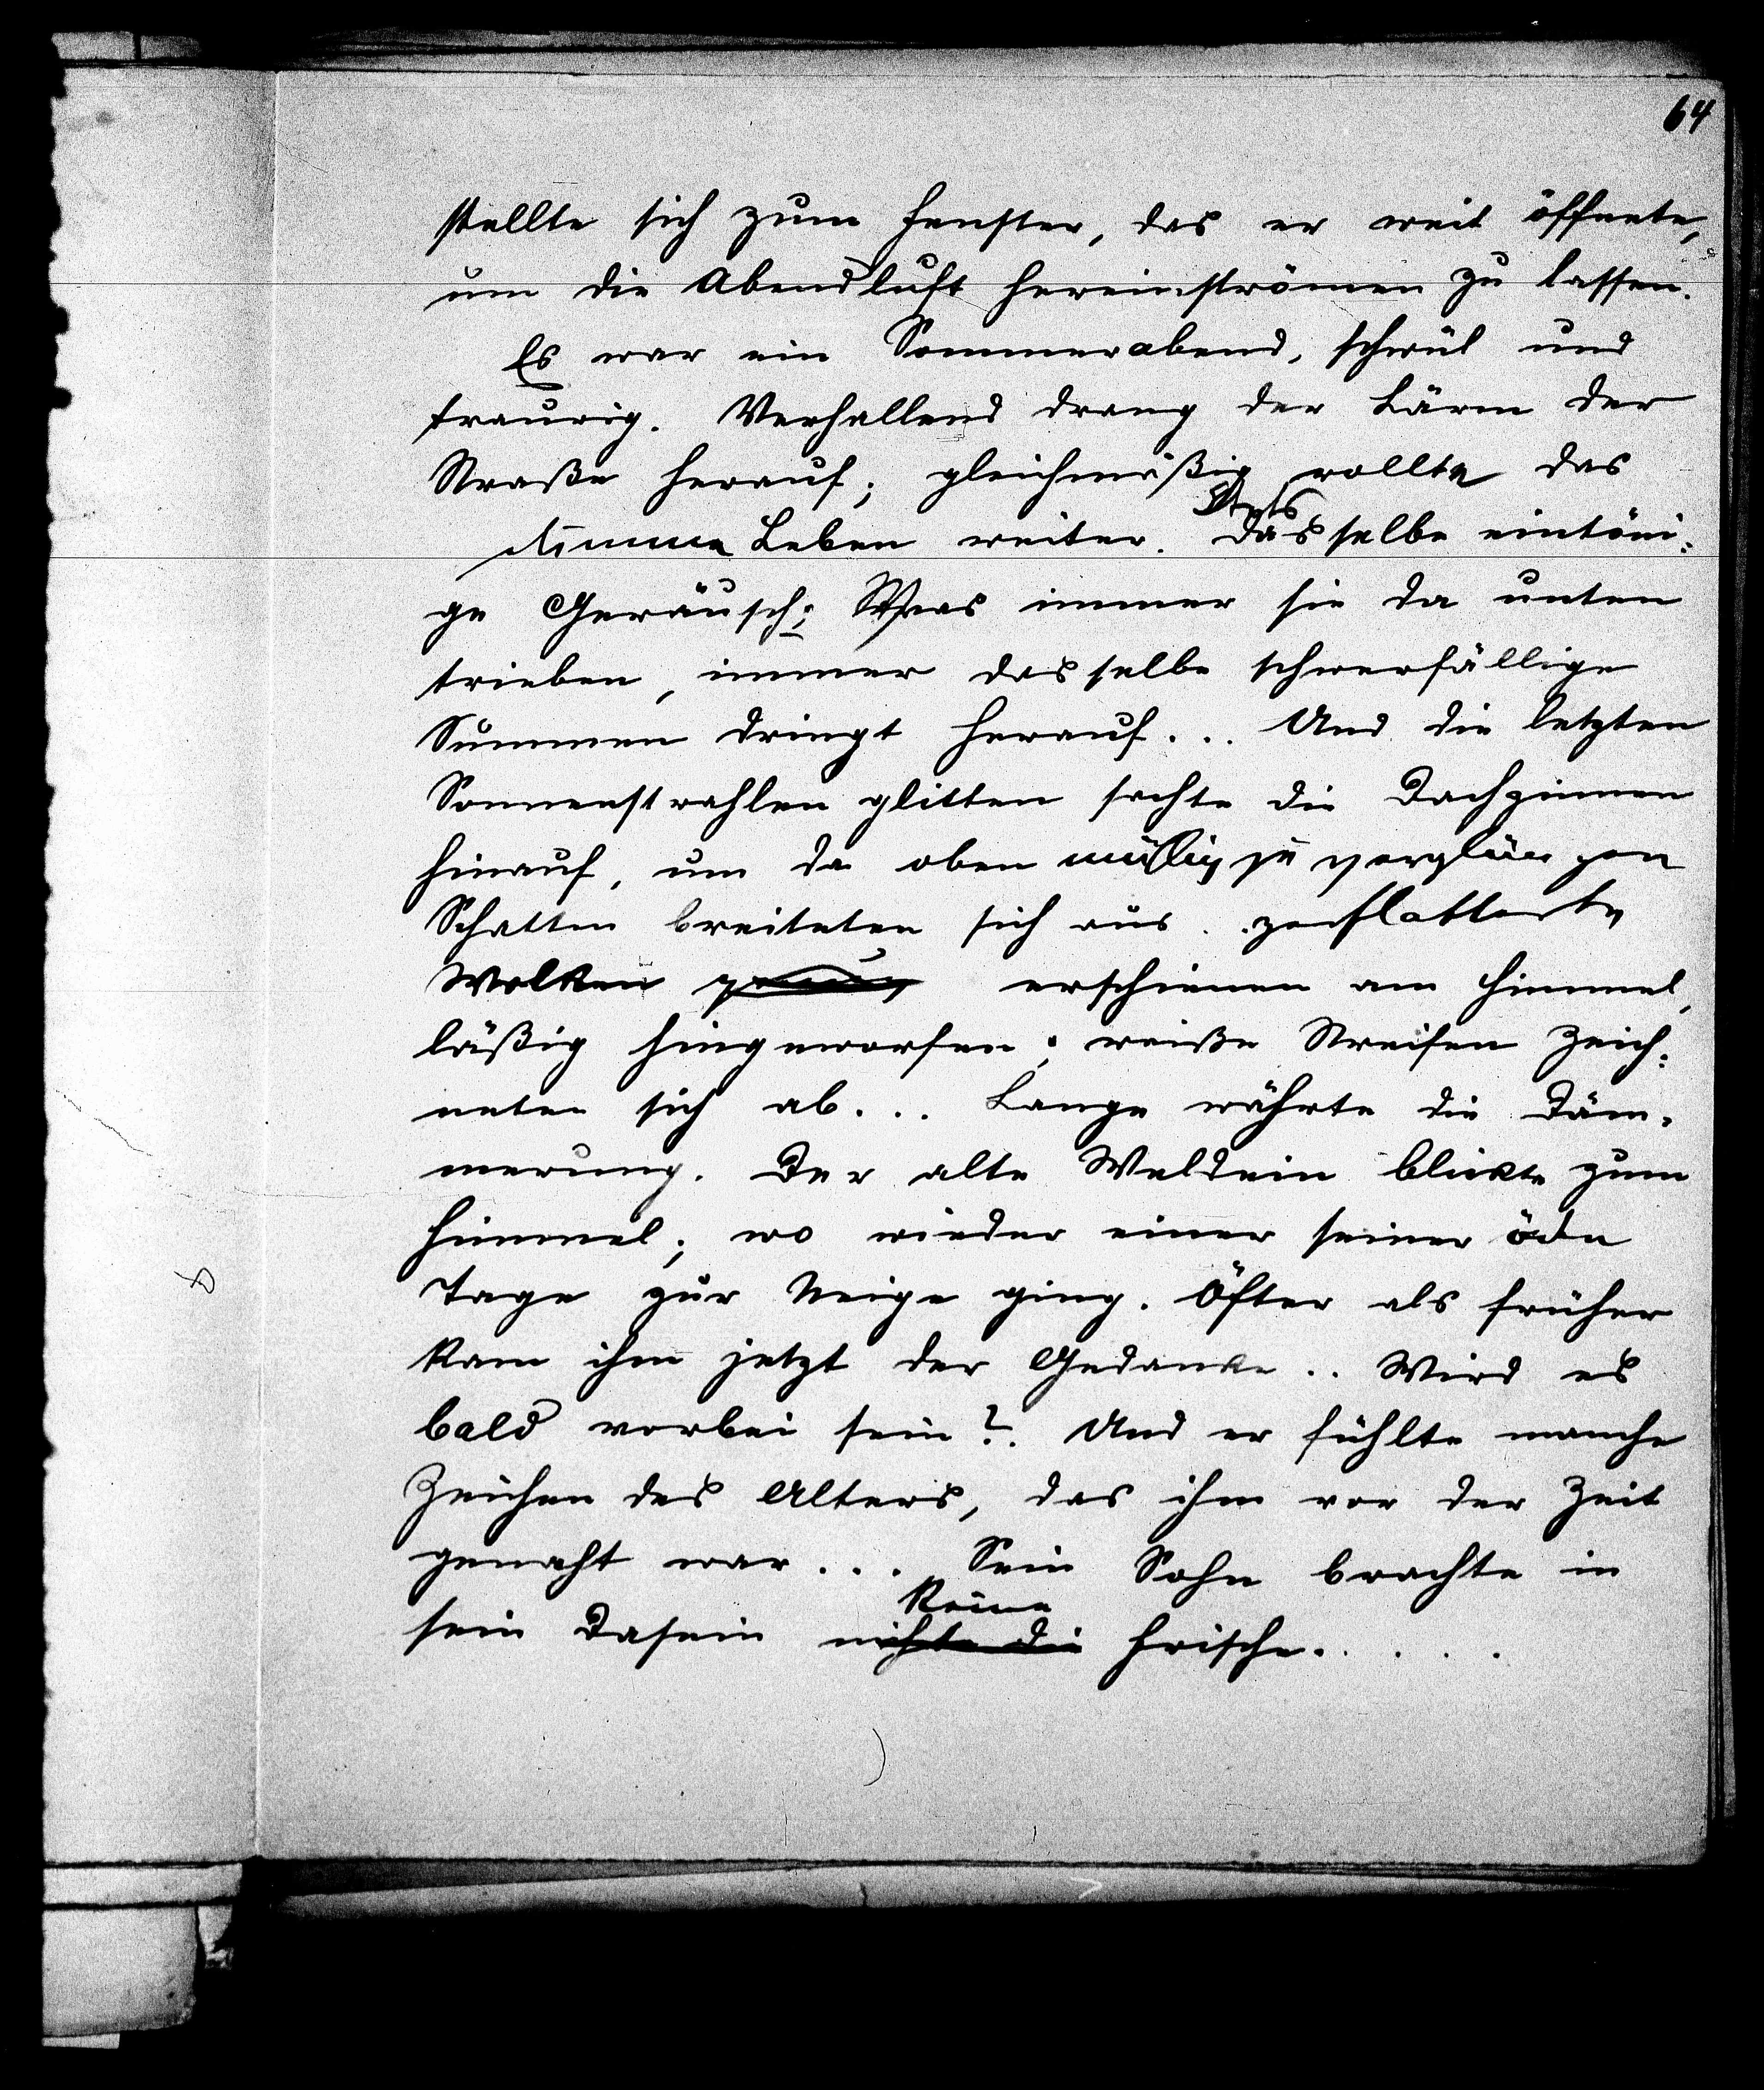 64
stellte sich zum Fenster, das er weit öffnete,
um die Abendluft hereinströmen zu lassen.
Es war ein Sommerabend, schwül und
traurig. Verhallend drang der Lärm der
Straße herauf; gleichmäßig rollte das
dumme Leben weiter. Stets
dasselbe eintöni-
ge Geräusch; Was immer sie da unten
trieben, immer dasselbe schwerfällige
Summen dringt herauf... Und die letzten
Sonnenstrahlen glitten sachte die Dachzinnen
hinauf, um da oben müßig zu verglänzen
Schatten breiteten sich aus. zerflatterte
Wolken erschienen am Himmel,
läßig hingeworfen; weiße Streifen zeich-
neten sich ab... Lange währte die Däm-
merung. Der alte Waldein blickte zum
Himmel; wo wieder einer seiner öden
Tage zur Neige ging. Öfter als früher
kam ihm jetzt der Gedanke.. Wird es
bald vorbei sein?. Und er fühlte manche
Zeichen des Alters, das ihm vor der Zeit
genaht war... Sein Sohn brachte in
keine
sein Dasein nichts die Frische.....